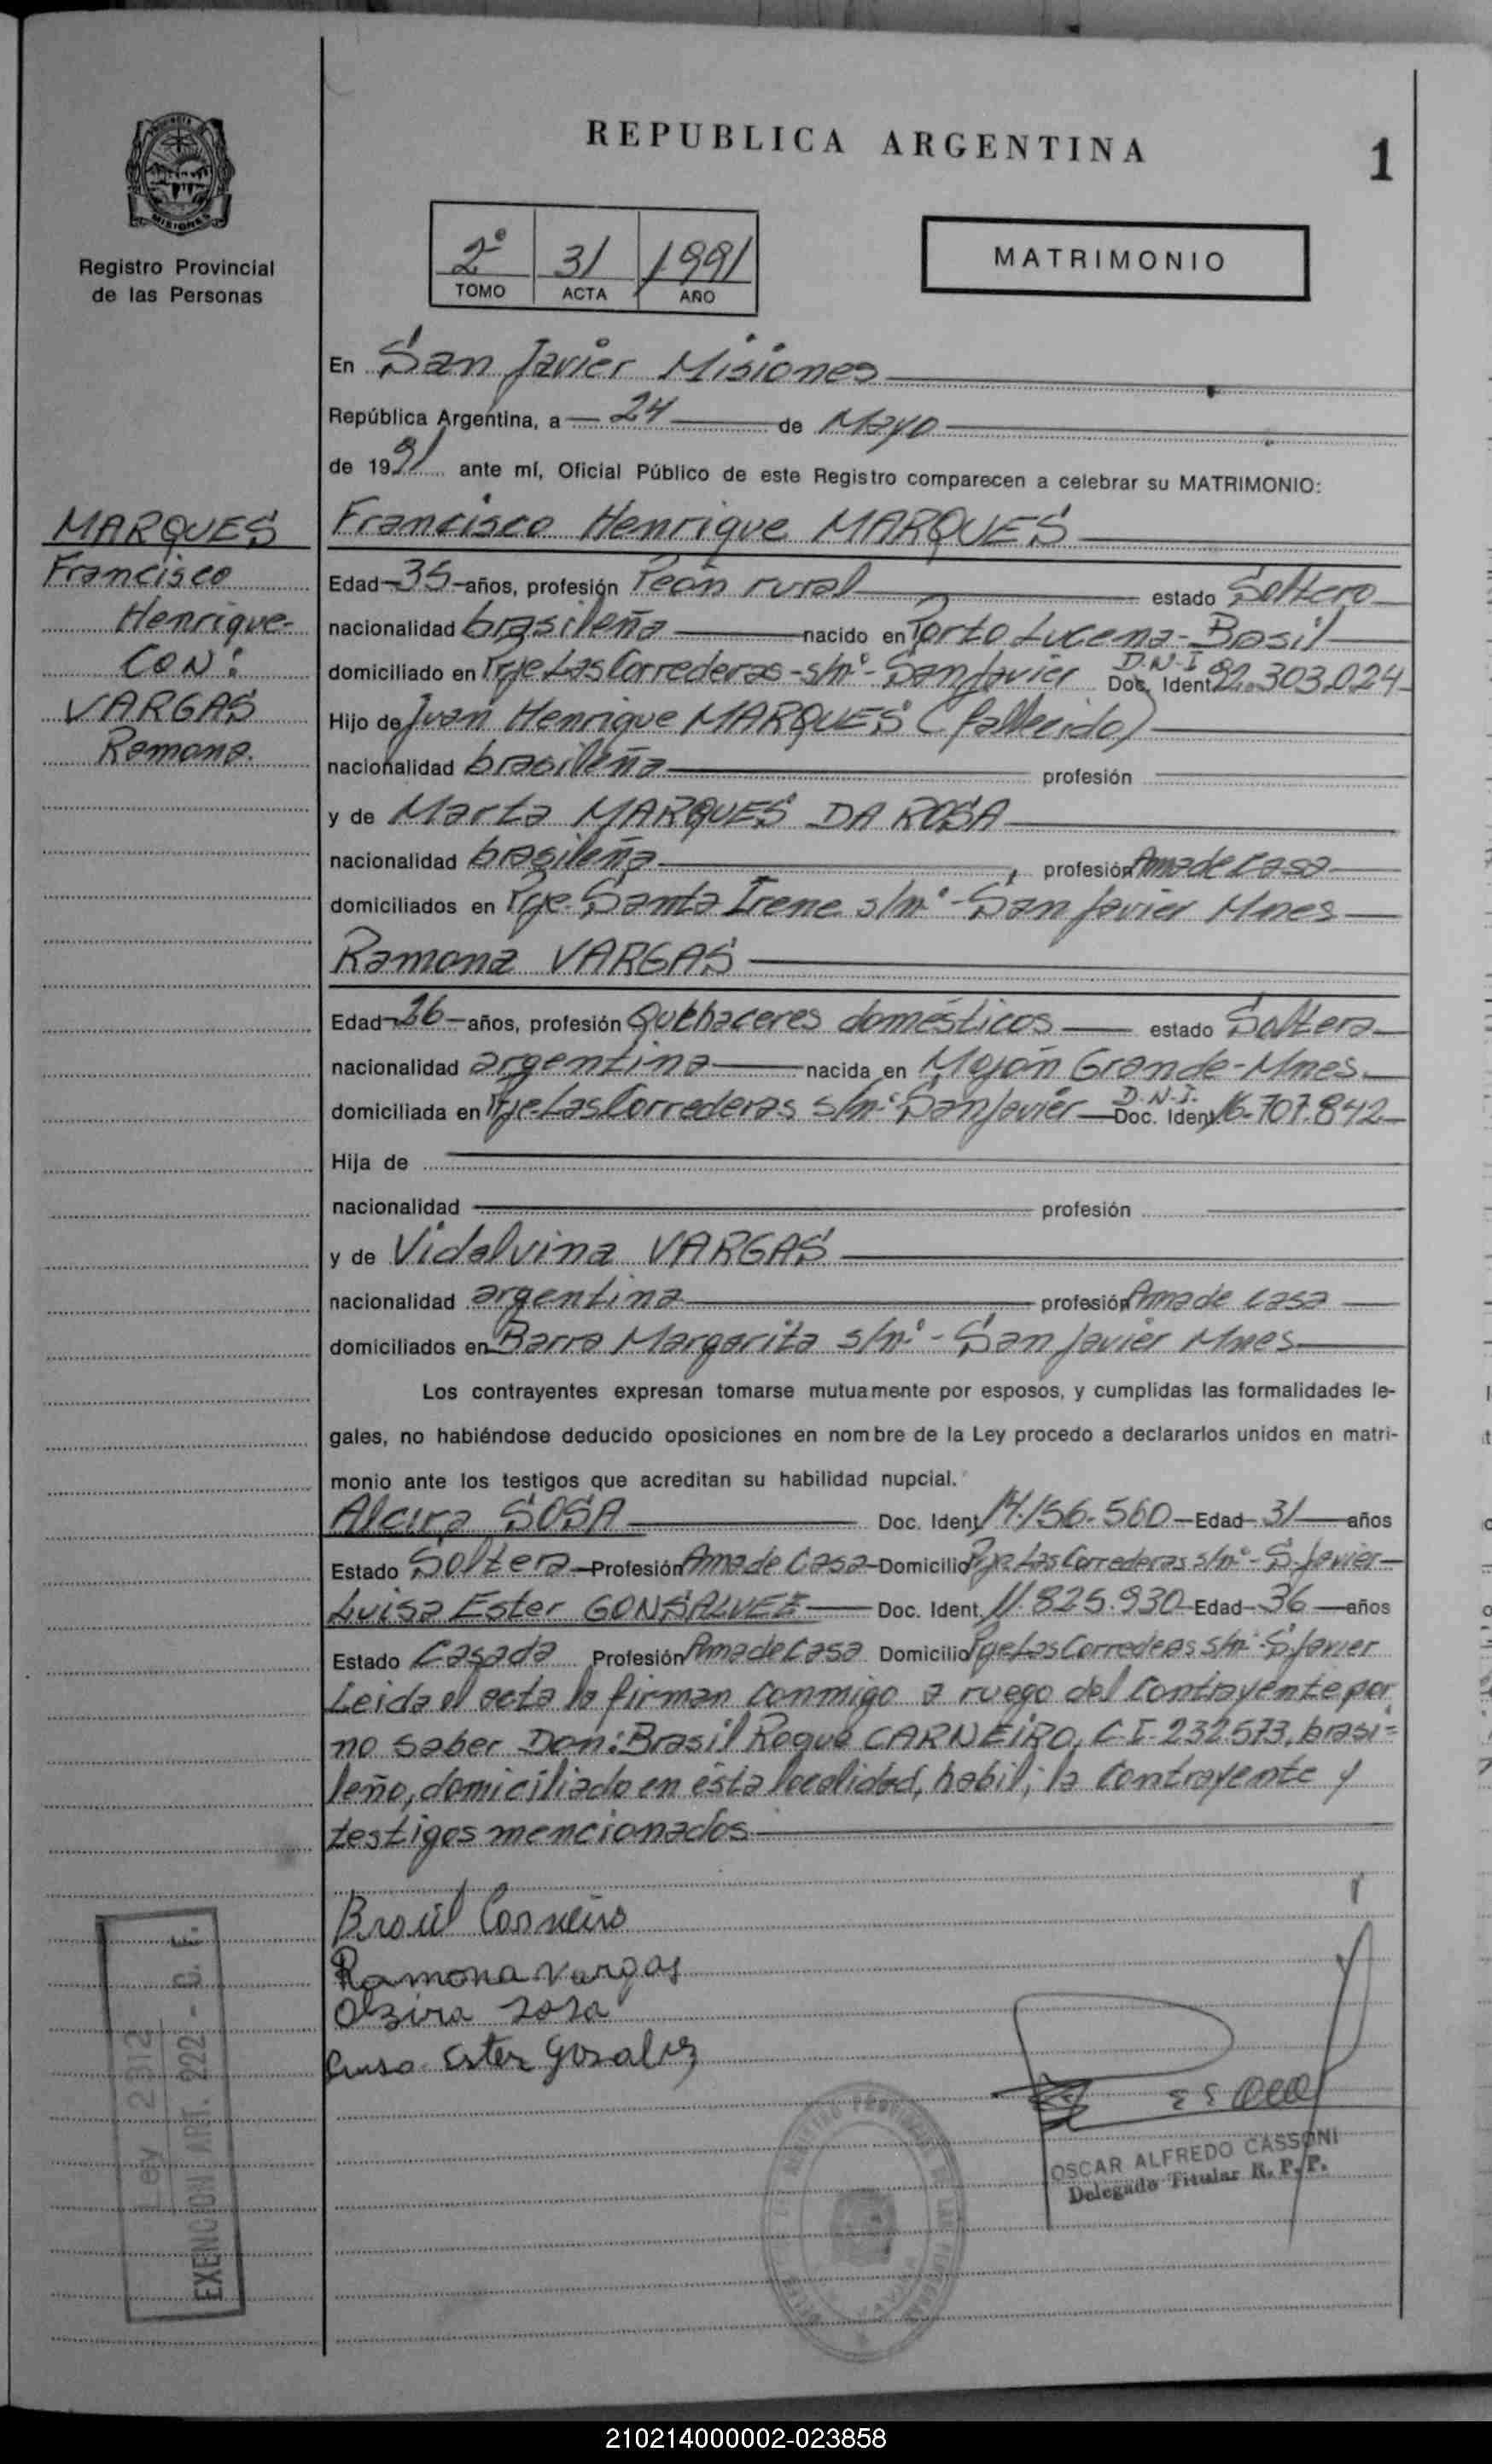 REPUBLICA ARGENTINA
1
PROVINCIA DE
MISIONES
Registro Provincial
de las Personas
2º 31 1991
TOMO ACTA AÑO
MATRIMONIO
En San Javier Misiones
República Argentina, a 24 de Mayo
de 1991 ante mí, Oficial Público de este Registro comparecen a celebrar su MATRIMONIO:
MARQUES
Francisco
Henrique-
CON:
VARGAS
Ramona.
Francisco Henrique MARQUES
Edad 35 años, profesión Peón rural estado Soltero
nacionalidad brasileña nacido en Porto Lucena-Brasil
domiciliado en Pje Las Correderas-s/nº-San Javier D.N.I Doc. Ident 92.303.024
Hijo de Juan Henrique MARQUES (fallecido)
nacionalidad brasileña profesión
y de Marta MARQUES DA ROSA
nacionalidad brasileña, profesión Ama de casa
domiciliados en Pje. Santa Irene s/nº-San Javier Mnes
Ramona VARGAS
Edad 26 años, profesión Quehaceres domésticos estado Soltera
nacionalidad argentina nacida en Mojón Grande-Mnes.
domiciliada en Pje-Las Correderas s/nº San Javier D.N.I. Doc. Ident. 16.707.842
Hija de
nacionalidad profesión
y de Vidalvina VARGAS
nacionalidad argentina profesión Ama de casa
domiciliados en Barra Margarita s/nº-San Javier Mnes
Los contrayentes expresan tomarse mutuamente por esposos, y cumplidas las formalidades le-
gales, no habiéndose deducido oposiciones en nombre de la Ley procedo a declararlos unidos en matri-
monio ante los testigos que acreditan su habilidad nupcial.
Alcira SOSA Doc. Ident. 14.156.560 Edad 31 años
Estado Soltera Profesión Ama de Casa Domicilio Pje Las Correderas s/nº-S. Javier
Luisa Ester GONSALVEZ Doc. Ident. 11.825.930 Edad 36 años
Estado Casada Profesión Ama de Casa Domicilio Pje Las Correderas s/nº-S. Javier
Leida el acta la firman conmigo a ruego del contrayente por
no saber Don: Brasil Roque CARNEIRO, C.I. 232.573, brasi=
leño, domiciliado en ésta localidad, habil; la contrayente y
testigos mencionados
Brasil Carneiro
Ramona Vargas
Alzira Sosa
Luisa Ester Gosalvez
OSCAR ALFREDO CASSONI
Delegado Titular R. P. P.
Ley 2312
EXENCION ART. 222 - C. F.
210214000002-023858